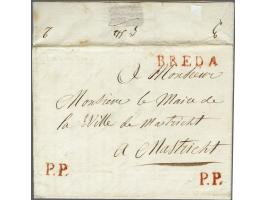 BREDA
A Monsieur
Monsieur le Maire de
la Ville de Mastricht
a Mastricht
P.P. P.P.